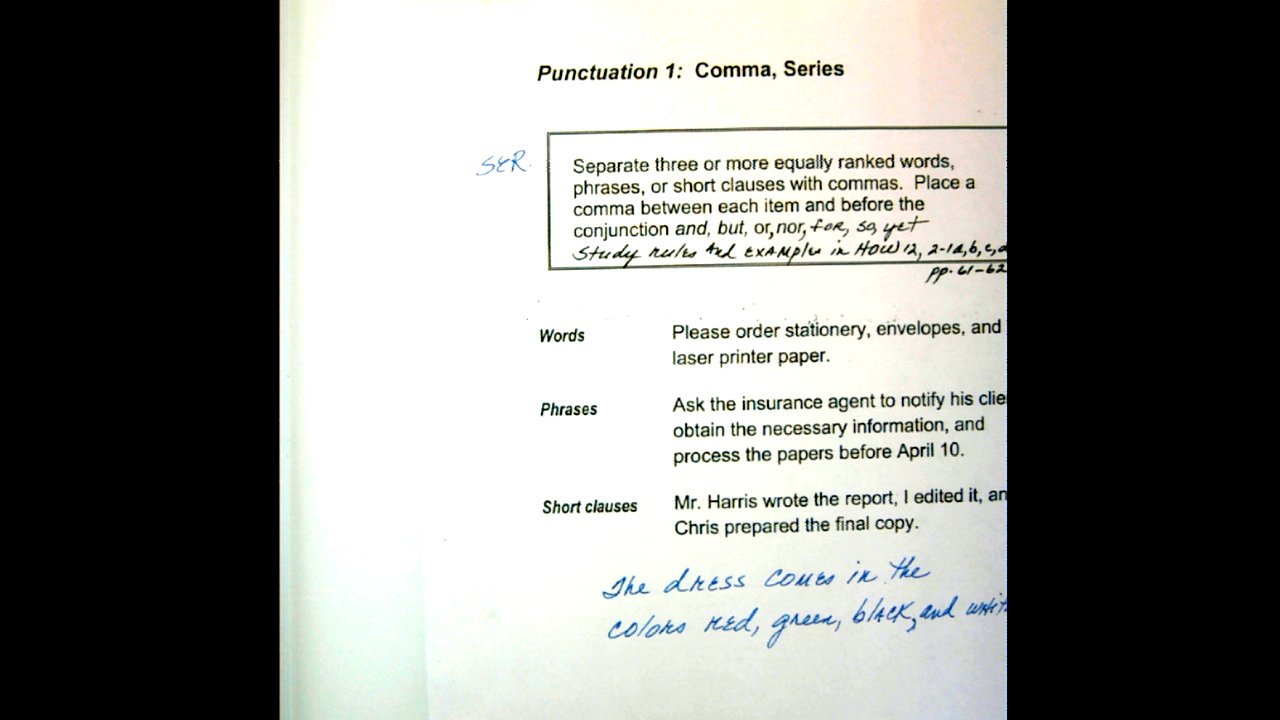 Punctuation 1: Comma, Series
SER.
Separate three or more equally ranked words,
phrases, or short clauses with commas. Place a
comma between each item and before the
conjunction and, but, or, nor, for, so, yet
Study rules and examples in HOW 12, 2-1a, b, c, d
pp. 61-62
Words
Please order stationery, envelopes, and
laser printer paper.
Phrases
Ask the insurance agent to notify his clie
obtain the necessary information, and
process the papers before April 10.
Short clauses
Mr. Harris wrote the report, I edited it, an
Chris prepared the final copy.
The dress comes in the
colors red, green, black, and whit